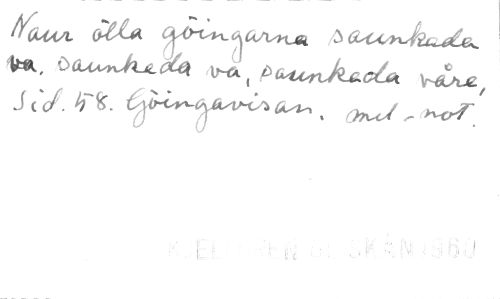 Naur ölla göingarna saunkada
va, saunkada va, saunkada våre,
Sid. 58. Göingavisan. mel-not.